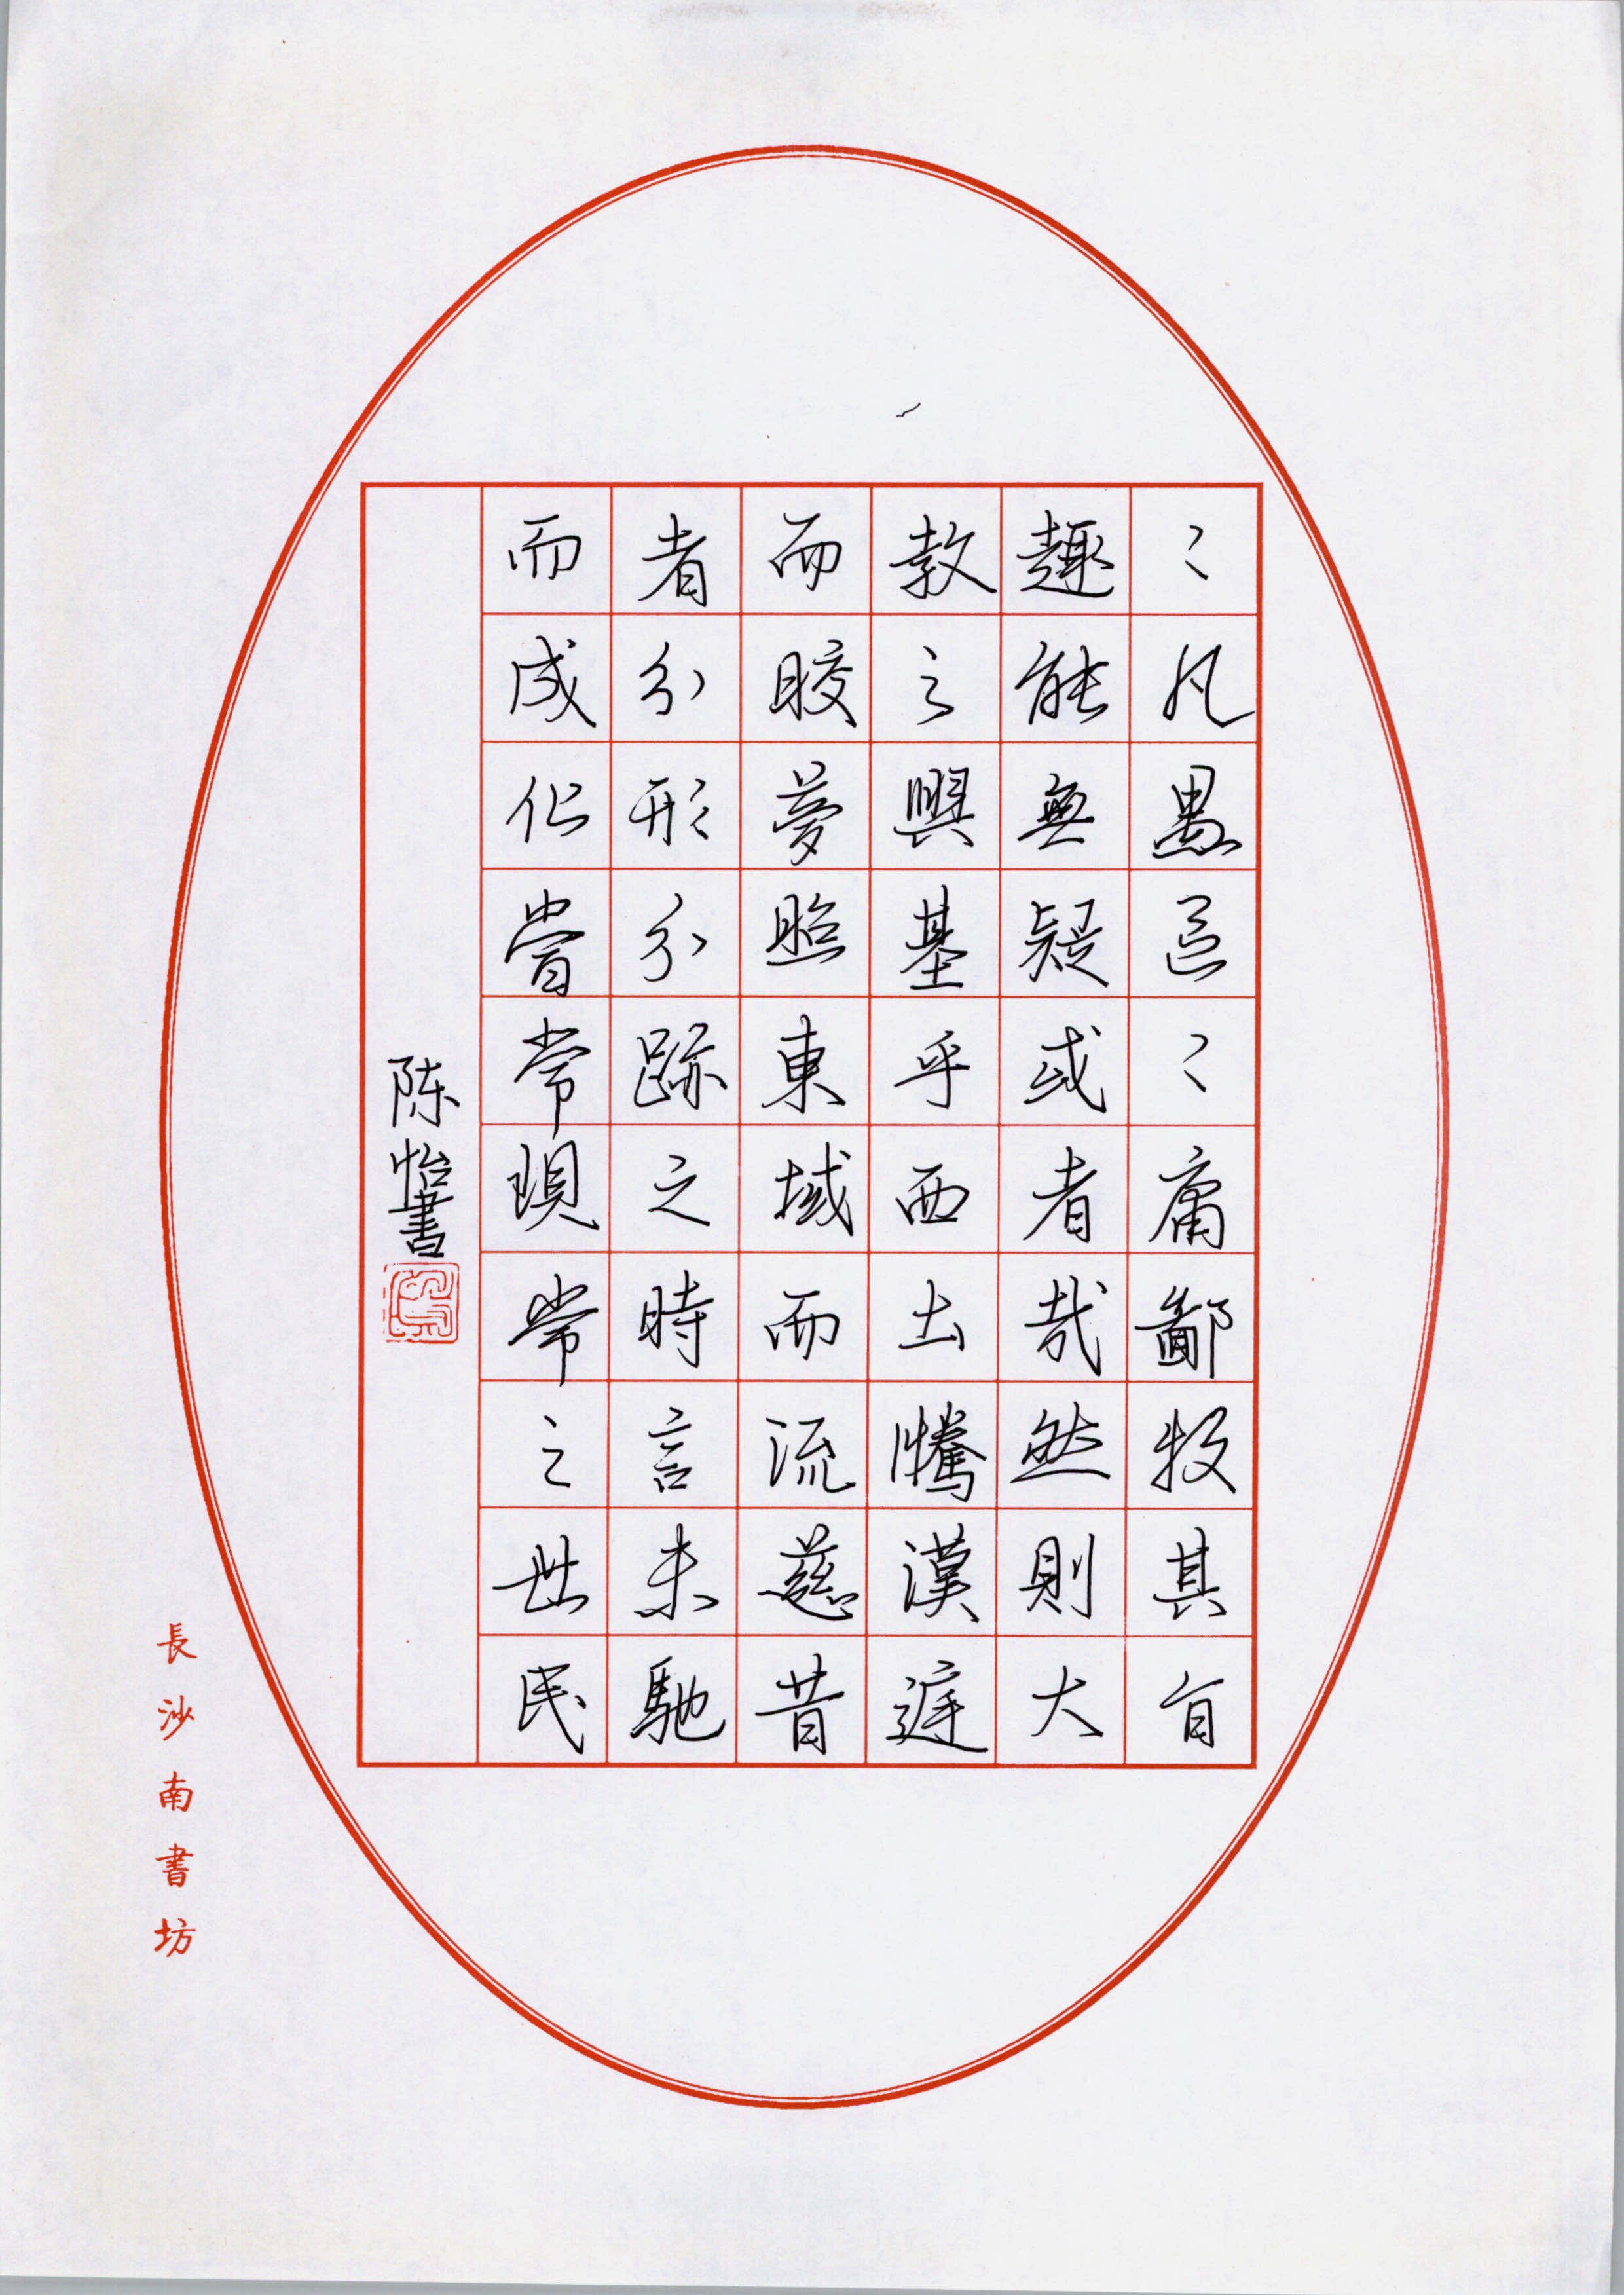 〻凡愚區〻庸鄙投其旨
趣能無疑或者哉然則大
教之興基乎西土騰漢庭
而皎夢照東域而流慈昔
者分形分跡之時言未馳
而成化當常現常之世民
陈怡書
長沙南書坊